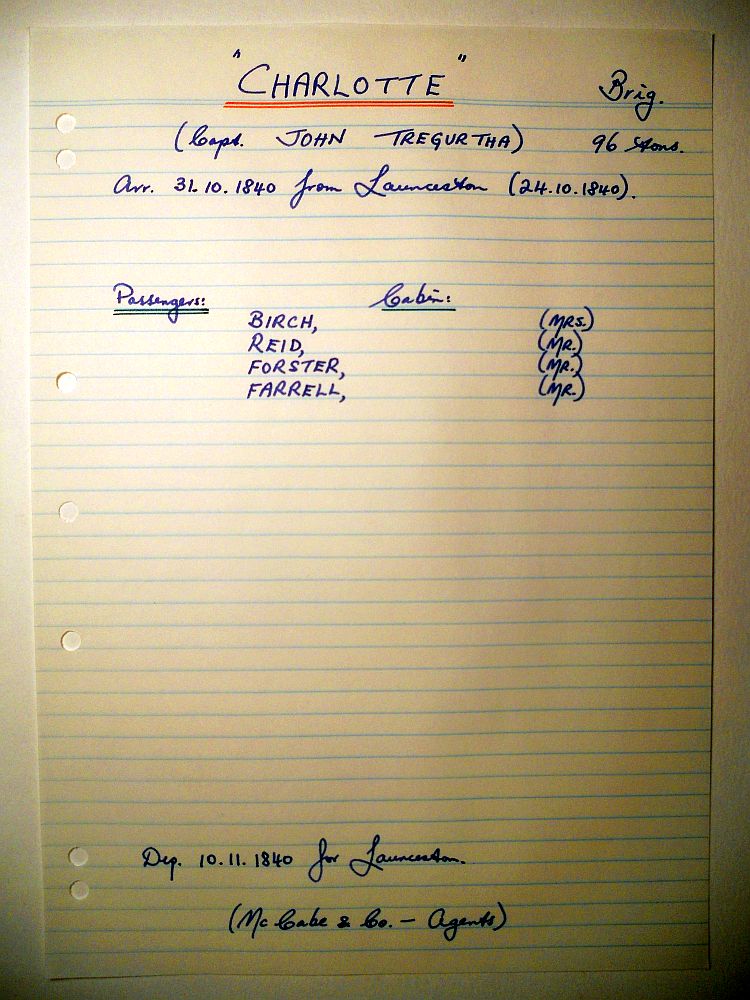 "CHARLOTTE" Brig.
(Capt. JOHN TREGURTHA) 96 tons.
Arr. 31.10.1840 from Launceston (24.10.1840).
Passengers: Cabin:
BIRCH, (MRS.)
REID, (MR.)
FORSTER, (MR.)
FARRELL, (MR.)
Dep. 10.11.1840 for Launceston.
(McCabe & Co. - Agents)